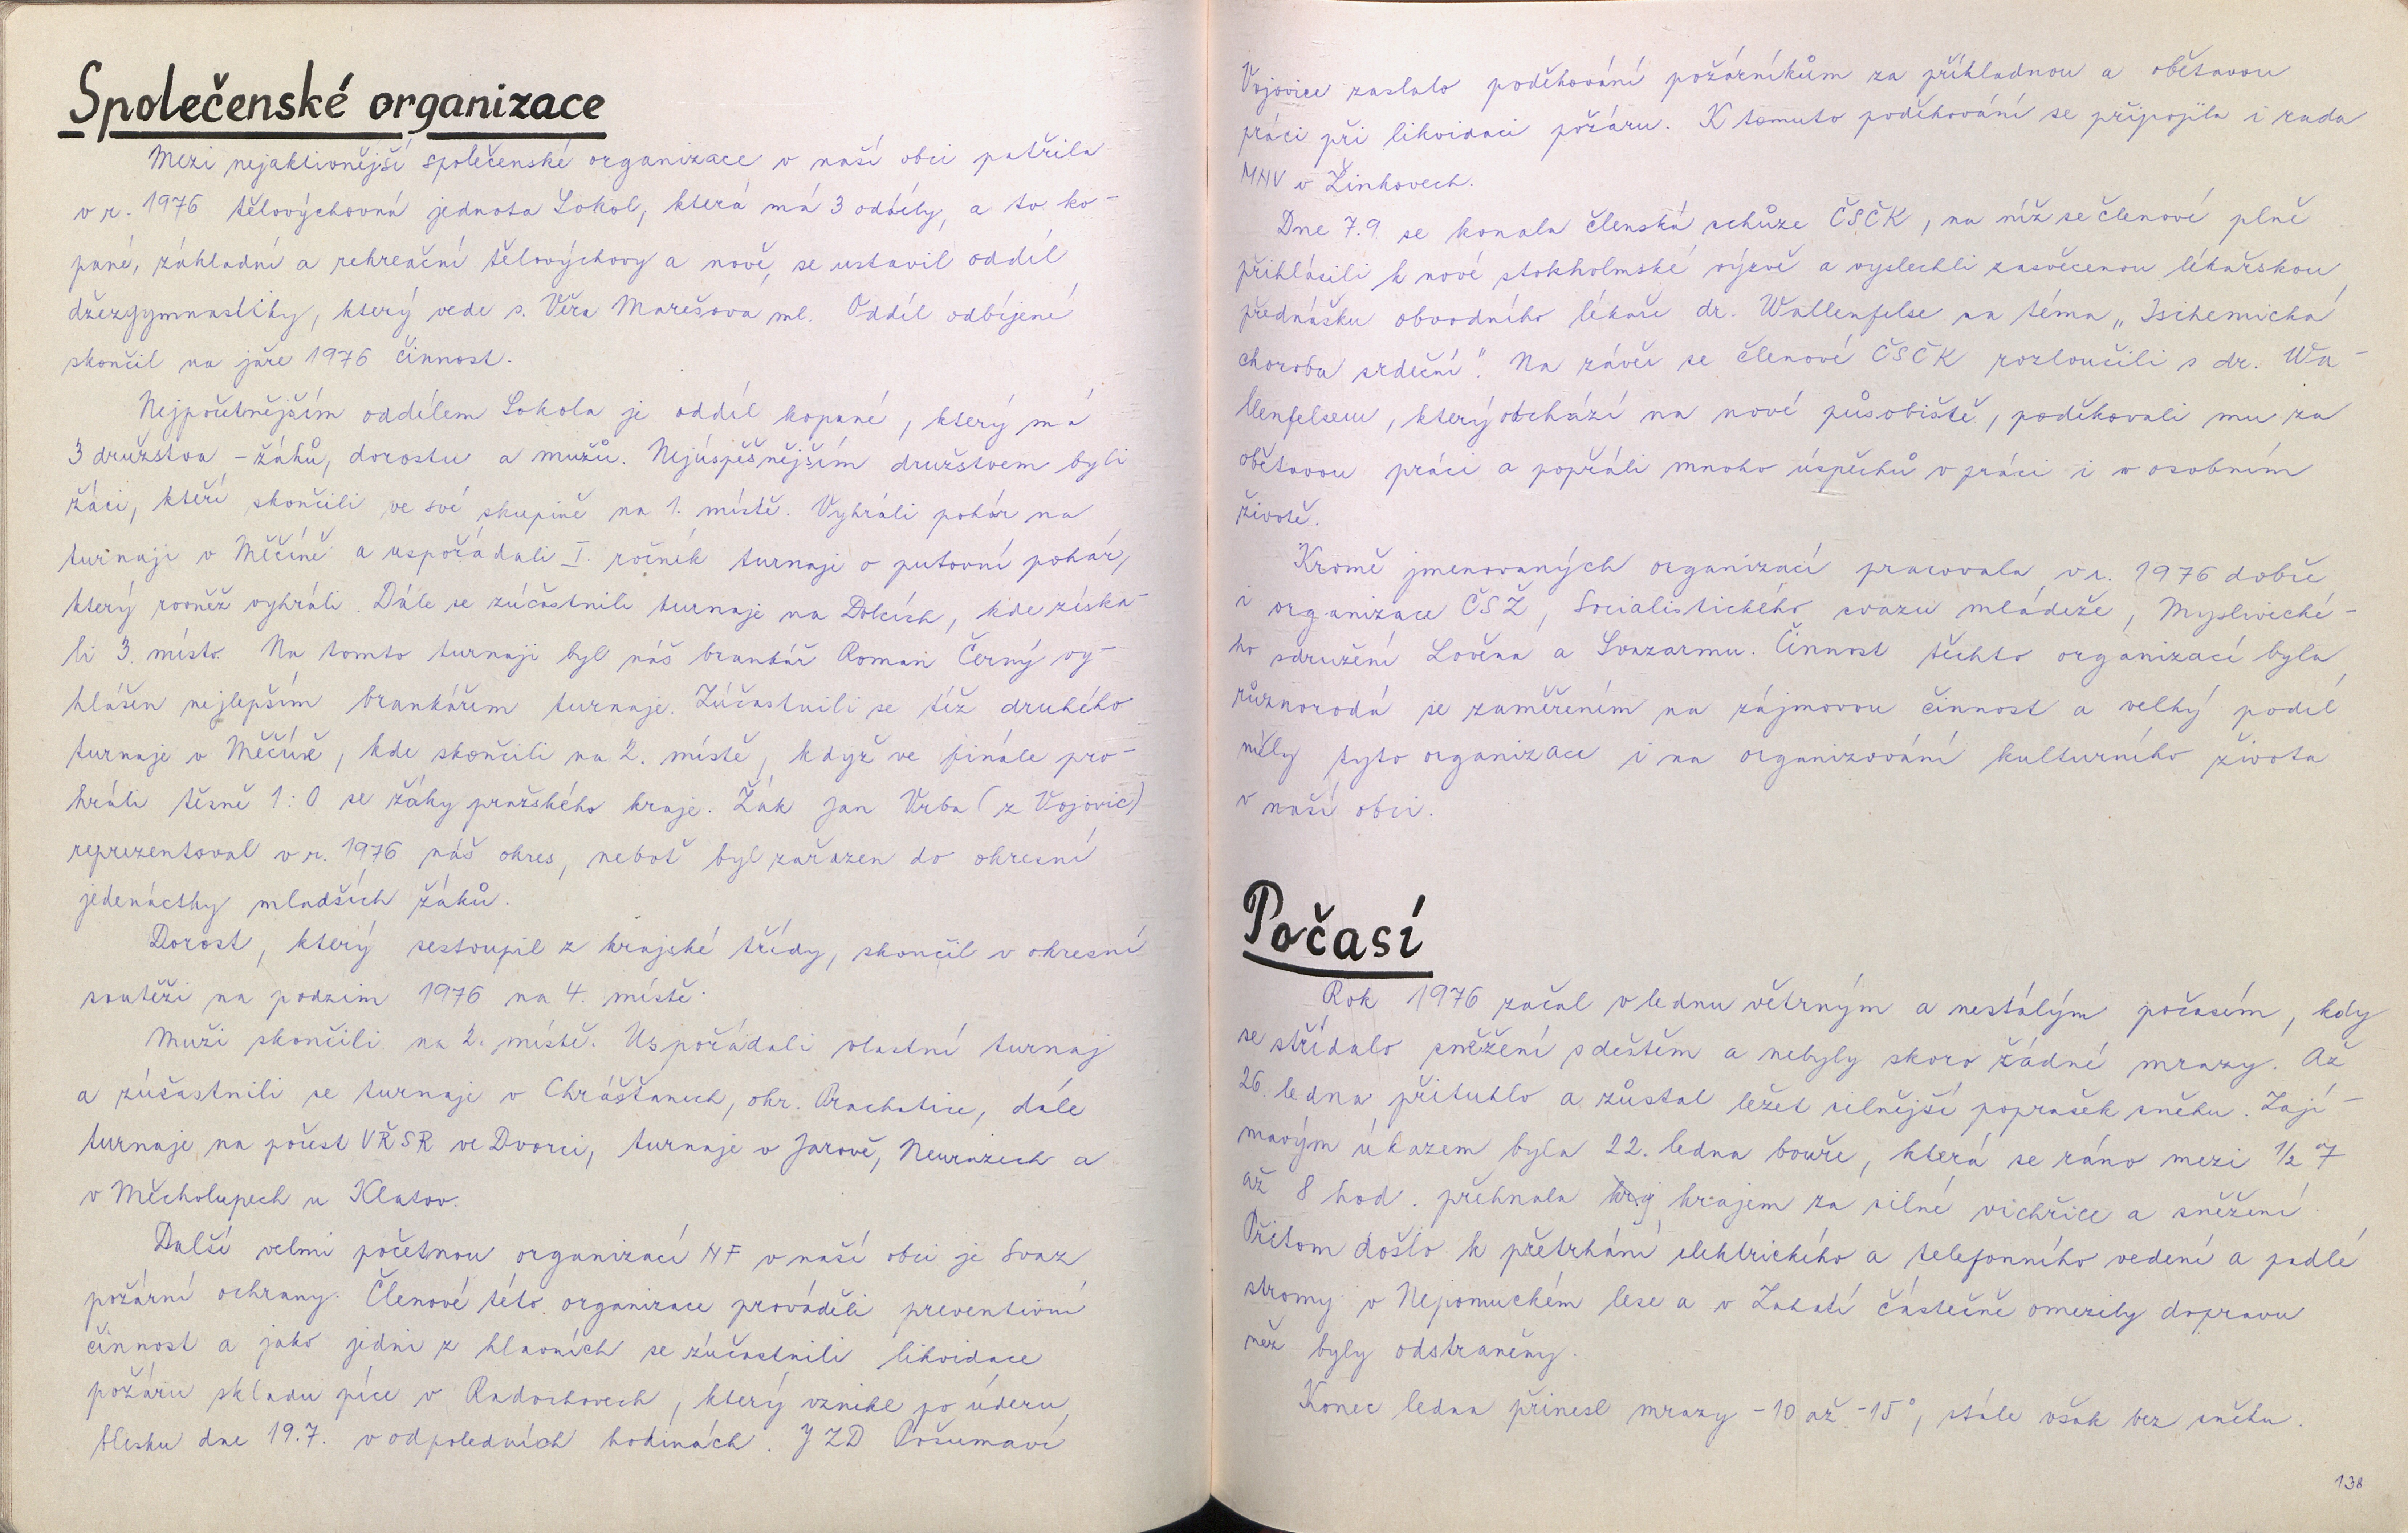 Společenské organizace
Mezi nejaktivnější společenské organizace v naší obci patřila
v r. 1976 tělovýchovná jednota Sokol, která má 3 oddíly, a to ko-
pané, základní a rekreační tělovýchovy a nově se ustavil oddíl
džezgymnastiky, který vede s. Věra Marešová ml. Oddíl odbíjené
skončil na jaře 1976 činnost.
Nejpočetnějším oddílem Sokola je oddíl kopané, který má
3 družstva - žáků, dorostu a mužů. Nejúspěšnějším družstvem byli
žáci, kteří skončili ve své skupině na 1. místě. Vyhráli pohár na
turnaji v Měčíně a uspořádali I. ročník turnaje o putovní pohár,
který rovněž vyhráli. Dále se zúčastnili turnaje na Dolcích, kde získa-
li 3. místo. Na tomto turnaji byl náš brankář Roman Černý vy-
hlášen nejlepším brankářem turnaje. Zúčastnili se též druhého
turnaje v Měčíně, kde skončili na 2. místě, když ve finále pro-
hráli těsně 1:0 se žáky pražského kraje. Žák Jan Vrba (z Vojovic)
reprezentoval v r. 1976 náš okres, neboť byl zařazen do okresní
jedenáctky mladších žáků.
Dorost, který sestoupil z krajské třídy, skončil v okresní
soutěži na podzim 1976 na 4. místě.
Muži skončili na 2. místě. Uspořádali vlastní turnaj
a zúšastnili se turnaje v Chrášťanech, okr. Prachatice, dále
turnaje na počest VŘSR ve Dvorci, turnaje v Jarově, Neurazech a
v Měcholupech u Klatov.
Další velmi početnou organizací NF v naší obci je Svaz
požární ochrany. Členové této organizace prováděli preventivní
činnost a jako jedni z hlavních se zúčastnili likvidace
požáru skladu píce v Radochovech, který vznikl po úderu
blesku dne 19.7. v odpoledních hodinách. JZD Pošumaví
Vojovice zaslalo poděkování požárníkům za příkladnou a obětavou
práci při likvidaci požáru. K tomuto poděkování se připojila i rada
MNV v Žinkovech.
Dne 7.9. se konala členská schůze ČSČK, na níž se členové plně
přihlásili k nové stokholmské výzvě a vyslechli zasvěcenou lékařskou
přednášku obvodního lékaře dr. Wallenfelse na téma „Ischemická
choroba srdeční". Na závěr se členové ČSČK rozloučili s dr. Wa-
llenfelsem, který odchází na nové působiště, poděkovali mu za
obětavou práci a popřáli mnoho úspěchů v práci i v osobním
životě.
Kromě jmenovaných organizací pracovala v r. 1976 dobře
i organizace ČSŽ, Socialistického svazu mládeže, Mysliveckė-
ho sdružení Lověna a Svazarmu. Činnost těchto organizací byla
různorodá se zaměřením na zájmovou činnost a velký podíl
měly tyto organizace i na organizování kulturního života
v naší obci.
Počasí
Rok 1976 začal v lednu větrným a nestálým počasím, kdy
se střídalo sněžení s deštěm a nebyly skoro žádné mrazy. Až
26. ledna přituhlo a zůstal ležet silnější poprašek sněhu. Zají-
mavým úkazem byla 22. ledna bouře, která se ráno mezi 1/2 7
až 8 hod. přehnala krajem za silné vichřice a sněžení
Přitom došlo k přetrhání elektrického a telefonního vedení a padlé
stromy v Nepomuckém lese a v Zahatí částečně omezily dopravu
než byly odstraněny.
Konec ledna přinesl mrazy -10 až -15°, stále však bez sněhu.
138